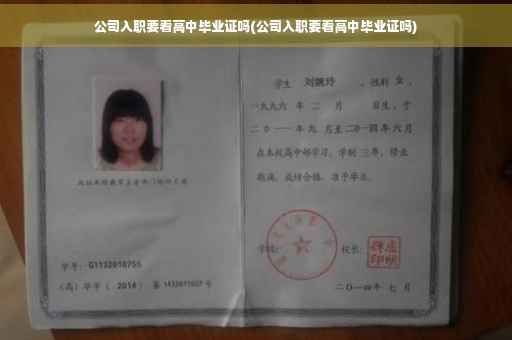 公司入职要看高中毕业证吗(公司入职要看高中毕业证吗)
学生 刘婉玲 ,性别 女 ,
一九九六 年 二 月 日生,于
二〇一一年九 月至二〇一四年 六 月
在本校高中部学习,学制 三 年,修业
期满,成绩合格,准予毕业。
学校: 校长:
学号: G1132010755
(高)毕字( 2014 )第 1432011027 号
二〇一四年 七 月